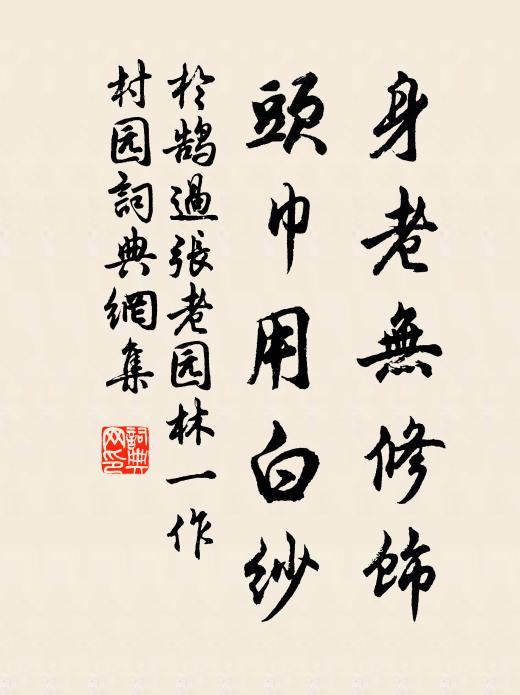 身老無修飾
頭巾用白紗
於鹄過張老园林一作
村园詞典網集
詞典
网印